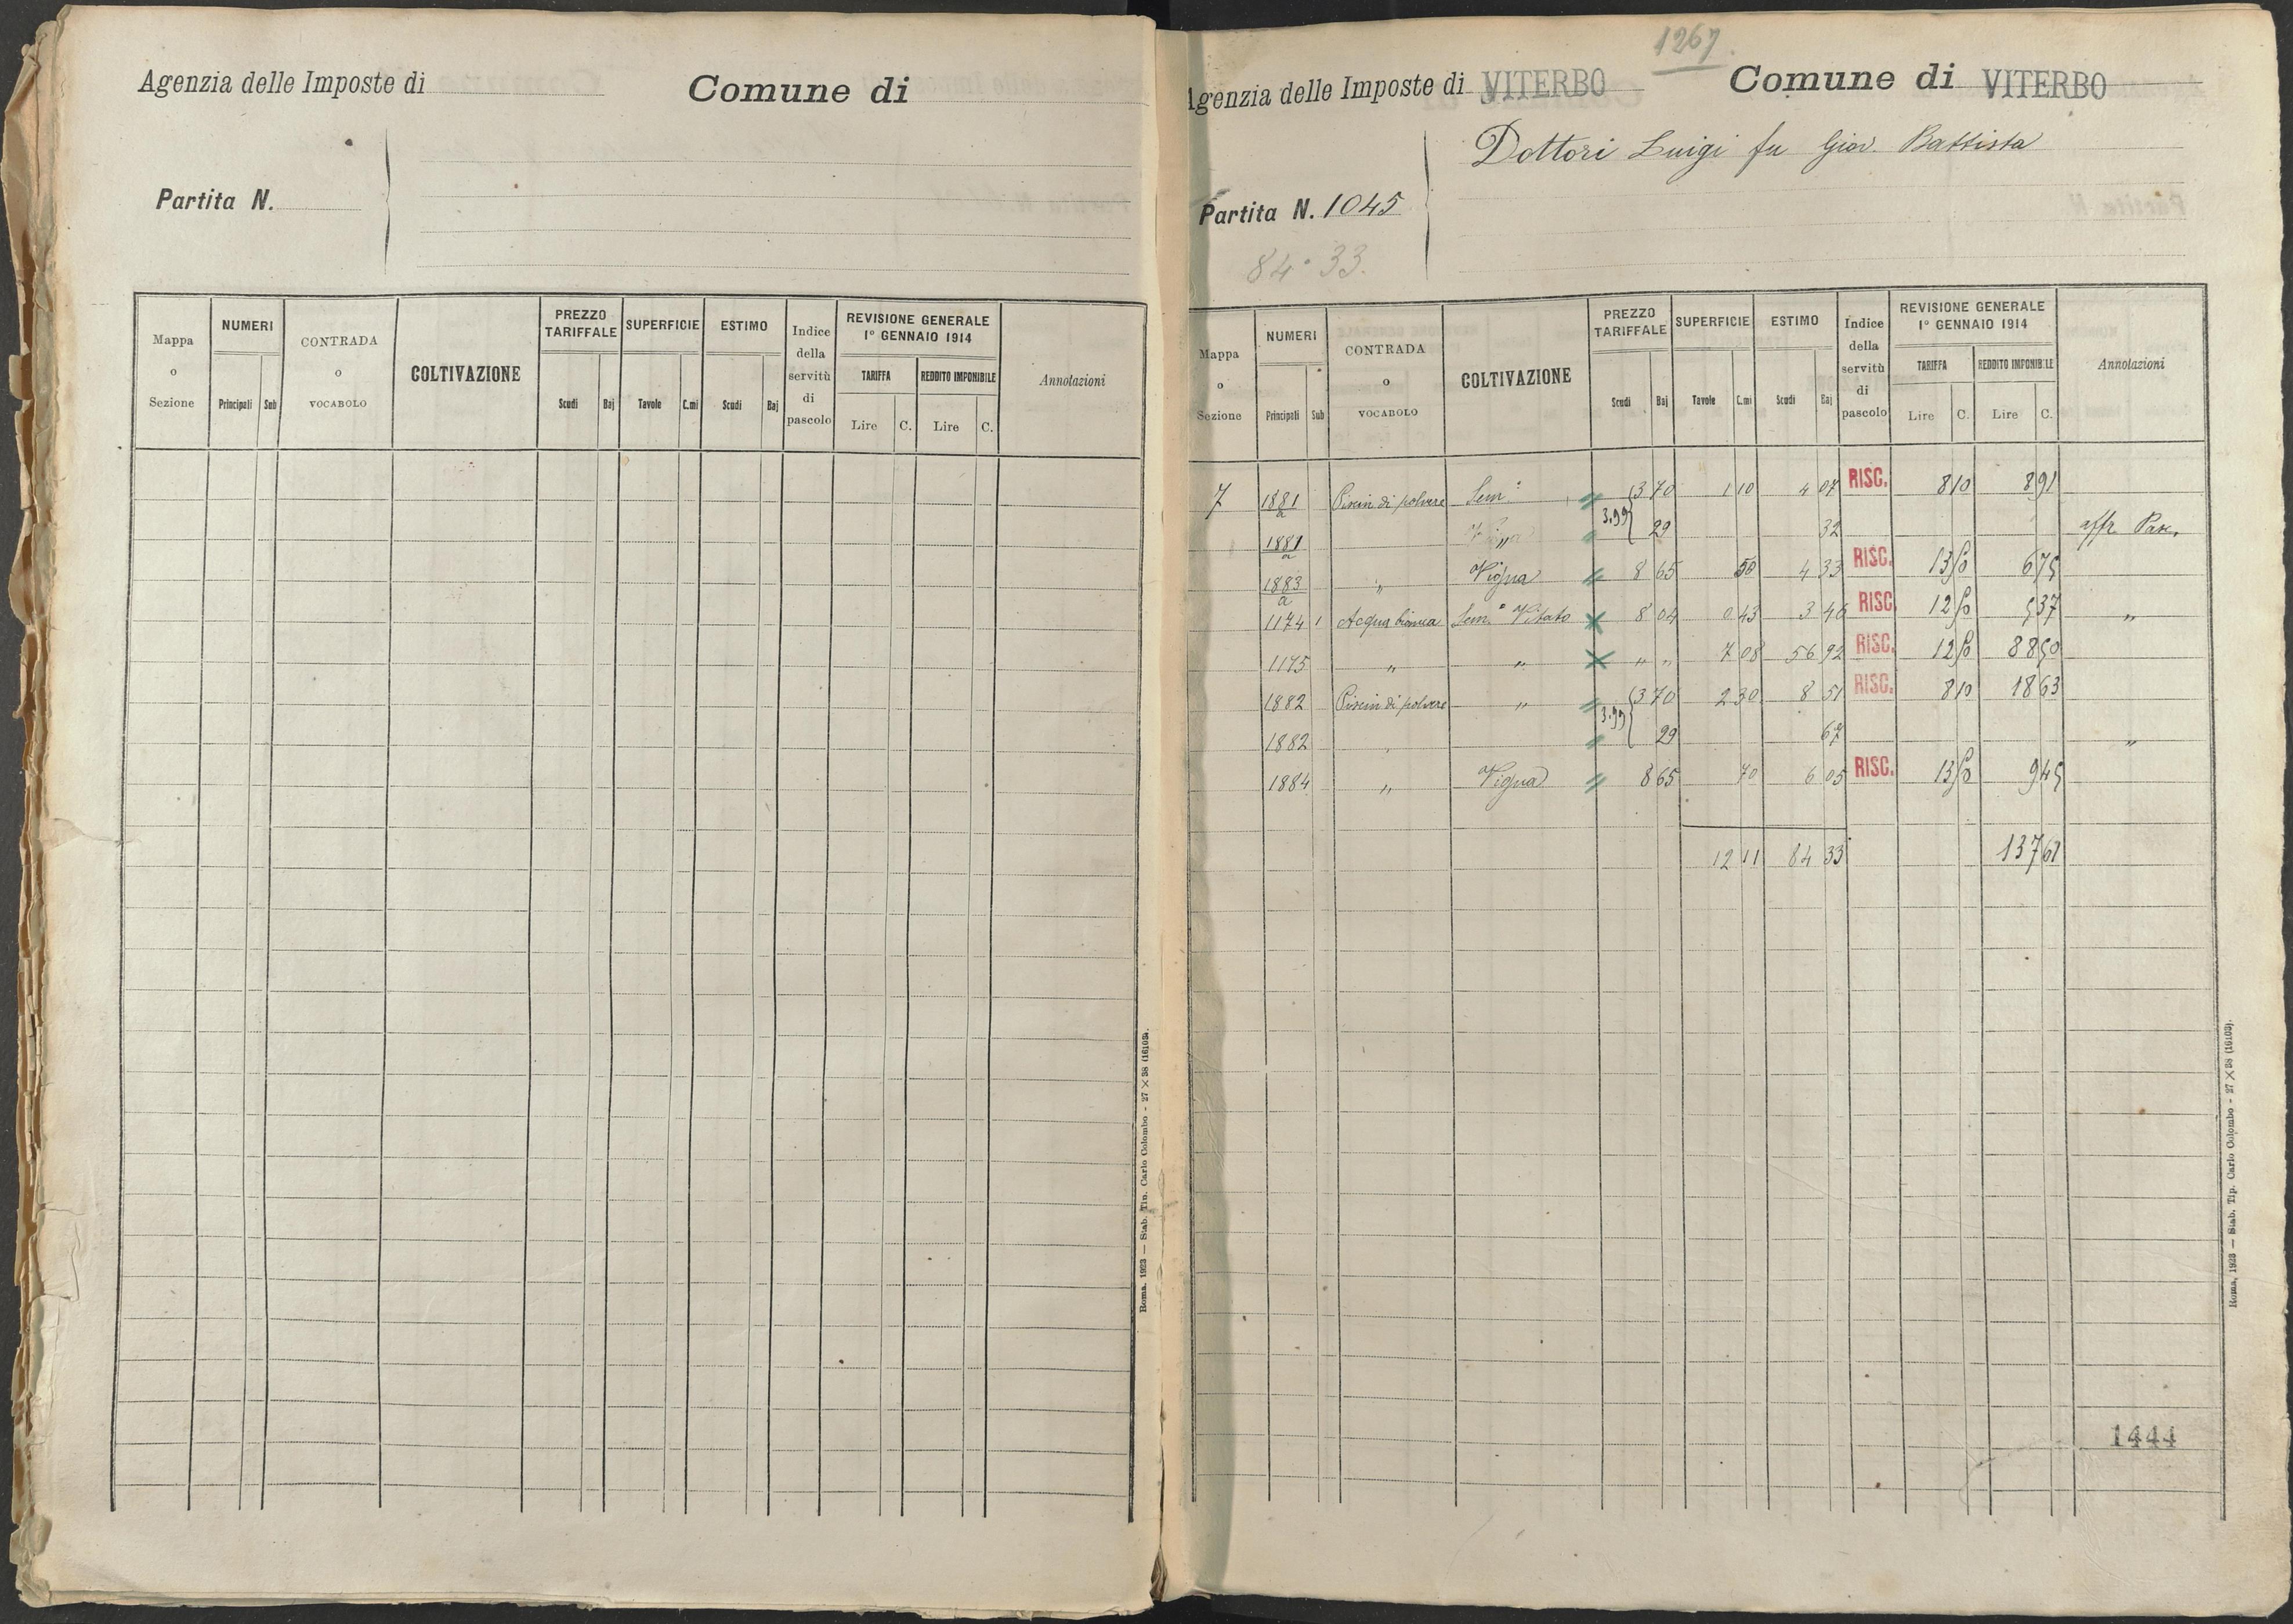 Agenzia delle Imposte di
Comune di
Partita N.
Mappa o Sezione
NUMERI
Principali
Sub
CONTRADA o VOCABOLO
COLTIVAZIONE
PREZZO TARIFFALE
Scudi
Baj
SUPERFICIE
Tavole
C.mi
ESTIMO
Scudi
Baj
Indice della servitù di pascolo
REVISIONE GENERALE 1° GENNAIO 1914
TARIFFA
Lire
C.
REDDITO IMPONIBILE
Lire
C.
Annotazioni
Roma, 1923 — Stab. Tip. Carlo Colombo - 27 X 38 (16103).
1267.
Agenzia delle Imposte di VITERBO
Comune di VITERBO
Dottori Luigi fu Giov. Battista
Partita N. 1045
84.33.
Mappa o Sezione
NUMERI
Principali
Sub
CONTRADA o VOCABOLO
COLTIVAZIONE
PREZZO TARIFFALE
Scudi
Baj
SUPERFICIE
Tavole
C.mi
ESTIMO
Scudi
Baj
Indice della servitù di pascolo
REVISIONE GENERALE 1° GENNAIO 1914
TARIFFA
Lire
C.
REDDITO IMPONIBILE
Lire
C.
Annotazioni
7 1881/a Piscin di polvere Sem.° 3 70 1 10 4 07 RISC. 8 10 8 91
3.99
1881/a " 29 32 affr. Pasc.
1883/a " Vigna 8 65 50 4 33 RISC. 13 50 6 75
1174 1 Acqua bianca Sem.° Vitato 8 04 0 43 3 46 RISC. 12 50 5 37 "
1175 " " " " 7 08 56 92 RISC. 12 50 88 50
1882 Piscin di polvere " 3 70 2 30 8 51 RISC. 8 10 18 63
3.99
1882 " 29 67 "
1884 " Vigna 8 65 70 6 05 RISC. 13 50 9 45
12 11 84 33 137 61
1444
Roma, 1923 — Stab. Tip. Carlo Colombo - 27 X 38 (16103).